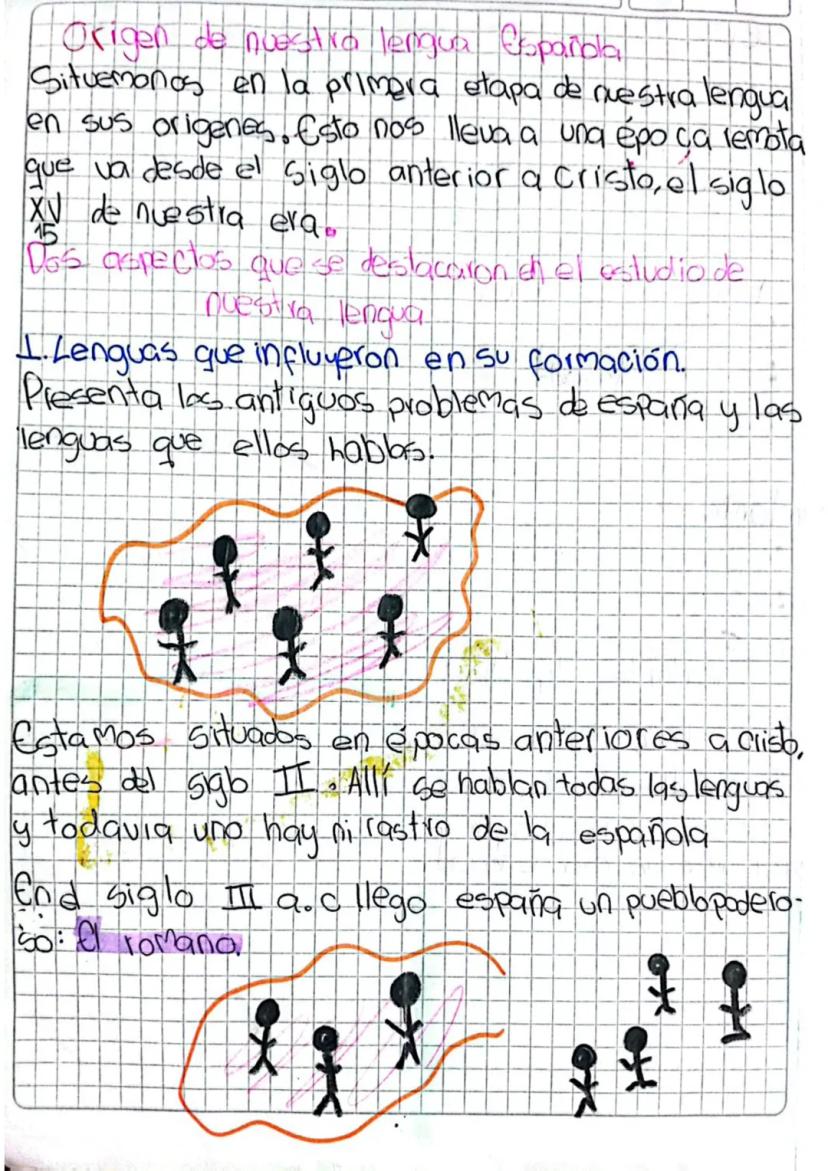 Origen de nuestra lengua Española
Situemonos en la primera etapa de nuestra lengua
en sus origenes. Esto nos lleva a una época remota
que va desde el siglo anterior a Cristo, el siglo
XV de nuestra era.
15
Dos aspectos que se destacaron en el estudio de
nuestra lengua
1. Lenguas que influyeron en su formación.
Presenta los antiguos problemas de españa y las
lenguas que ellos hablas.
Estamos situados en épocas anteriores a cristo,
antes del siglo II. Allí se hablan todas las lenguas
y todavia uno hay ni rastro de la española
En el siglo III a.c llego españa un pueblo podero-
so: El romano.